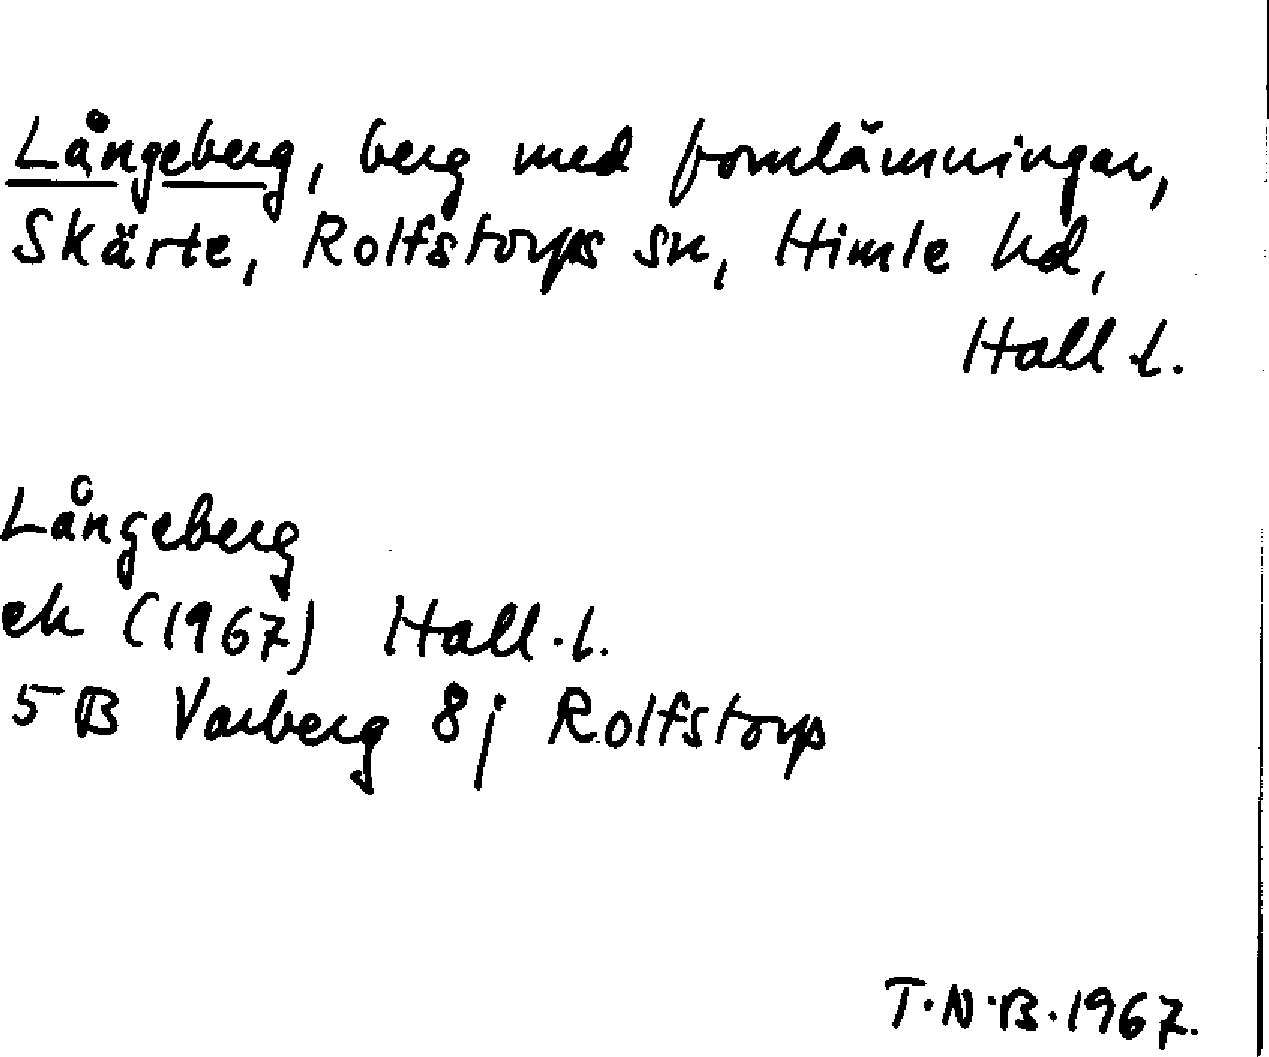 Långeberg, berg med fornlämningar,
Skärte, Rolfstorps sn, Himle hd,
Hall l.
Långeberg
ek (1967) Hall.l.
5 B Varberg 8 j Rolfstorp
T.N.B.1967.